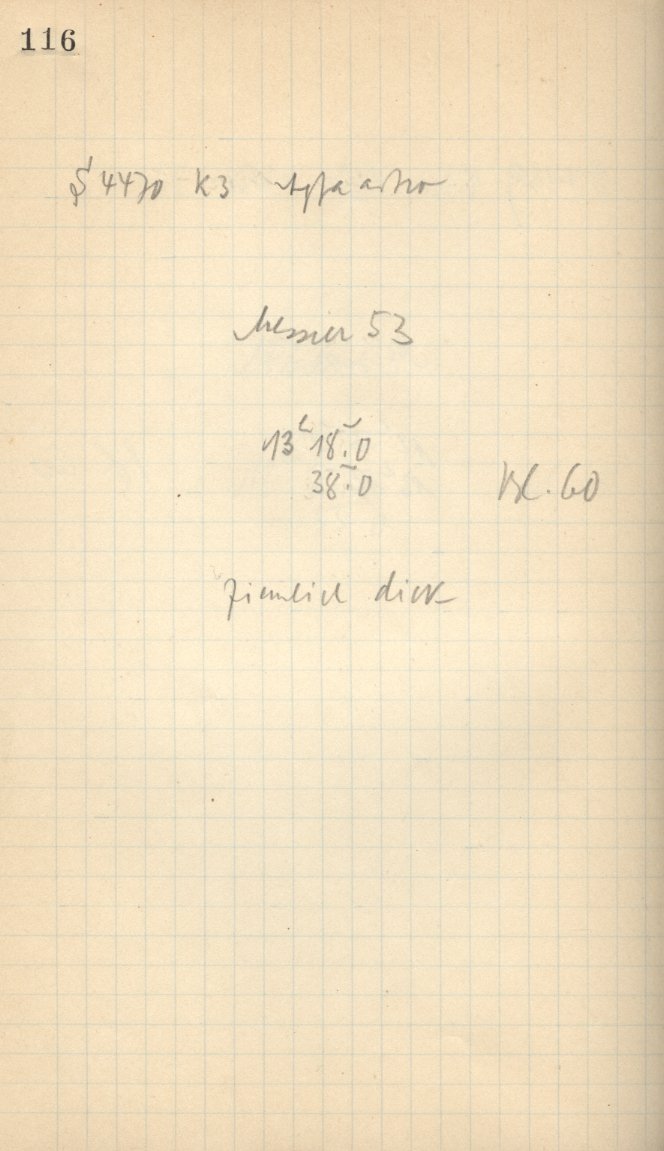 116
S 4470 K3 Agfa astro
Messier 53
13h 18m.0
38m.0
Bl. 60
ziemlich dick